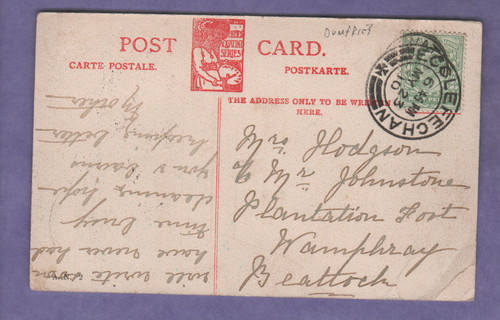 Dumfries
POST CARD.
SERIES
CARTE POSTALE.
POSTKARTE.
THE ADDRESS ONLY TO BE WRITTEN
HERE.
ECCLEFECHAN
Mrs Hodgson
c/o Mr Johnstone
Plantation Foot
Wamphray
Beattock
will write soon
have never had
time busy
cleaning hope
you &
keeping better